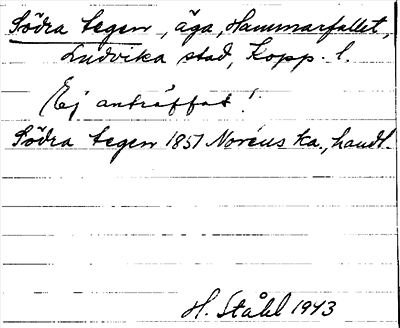 Södra tegen, äga, Hammarfallet,
Ludvika stad, Kopp. l.
Ej anträffat!
Södra tegen 1857 Noréns ka., handl.
H. Ståhl 1943